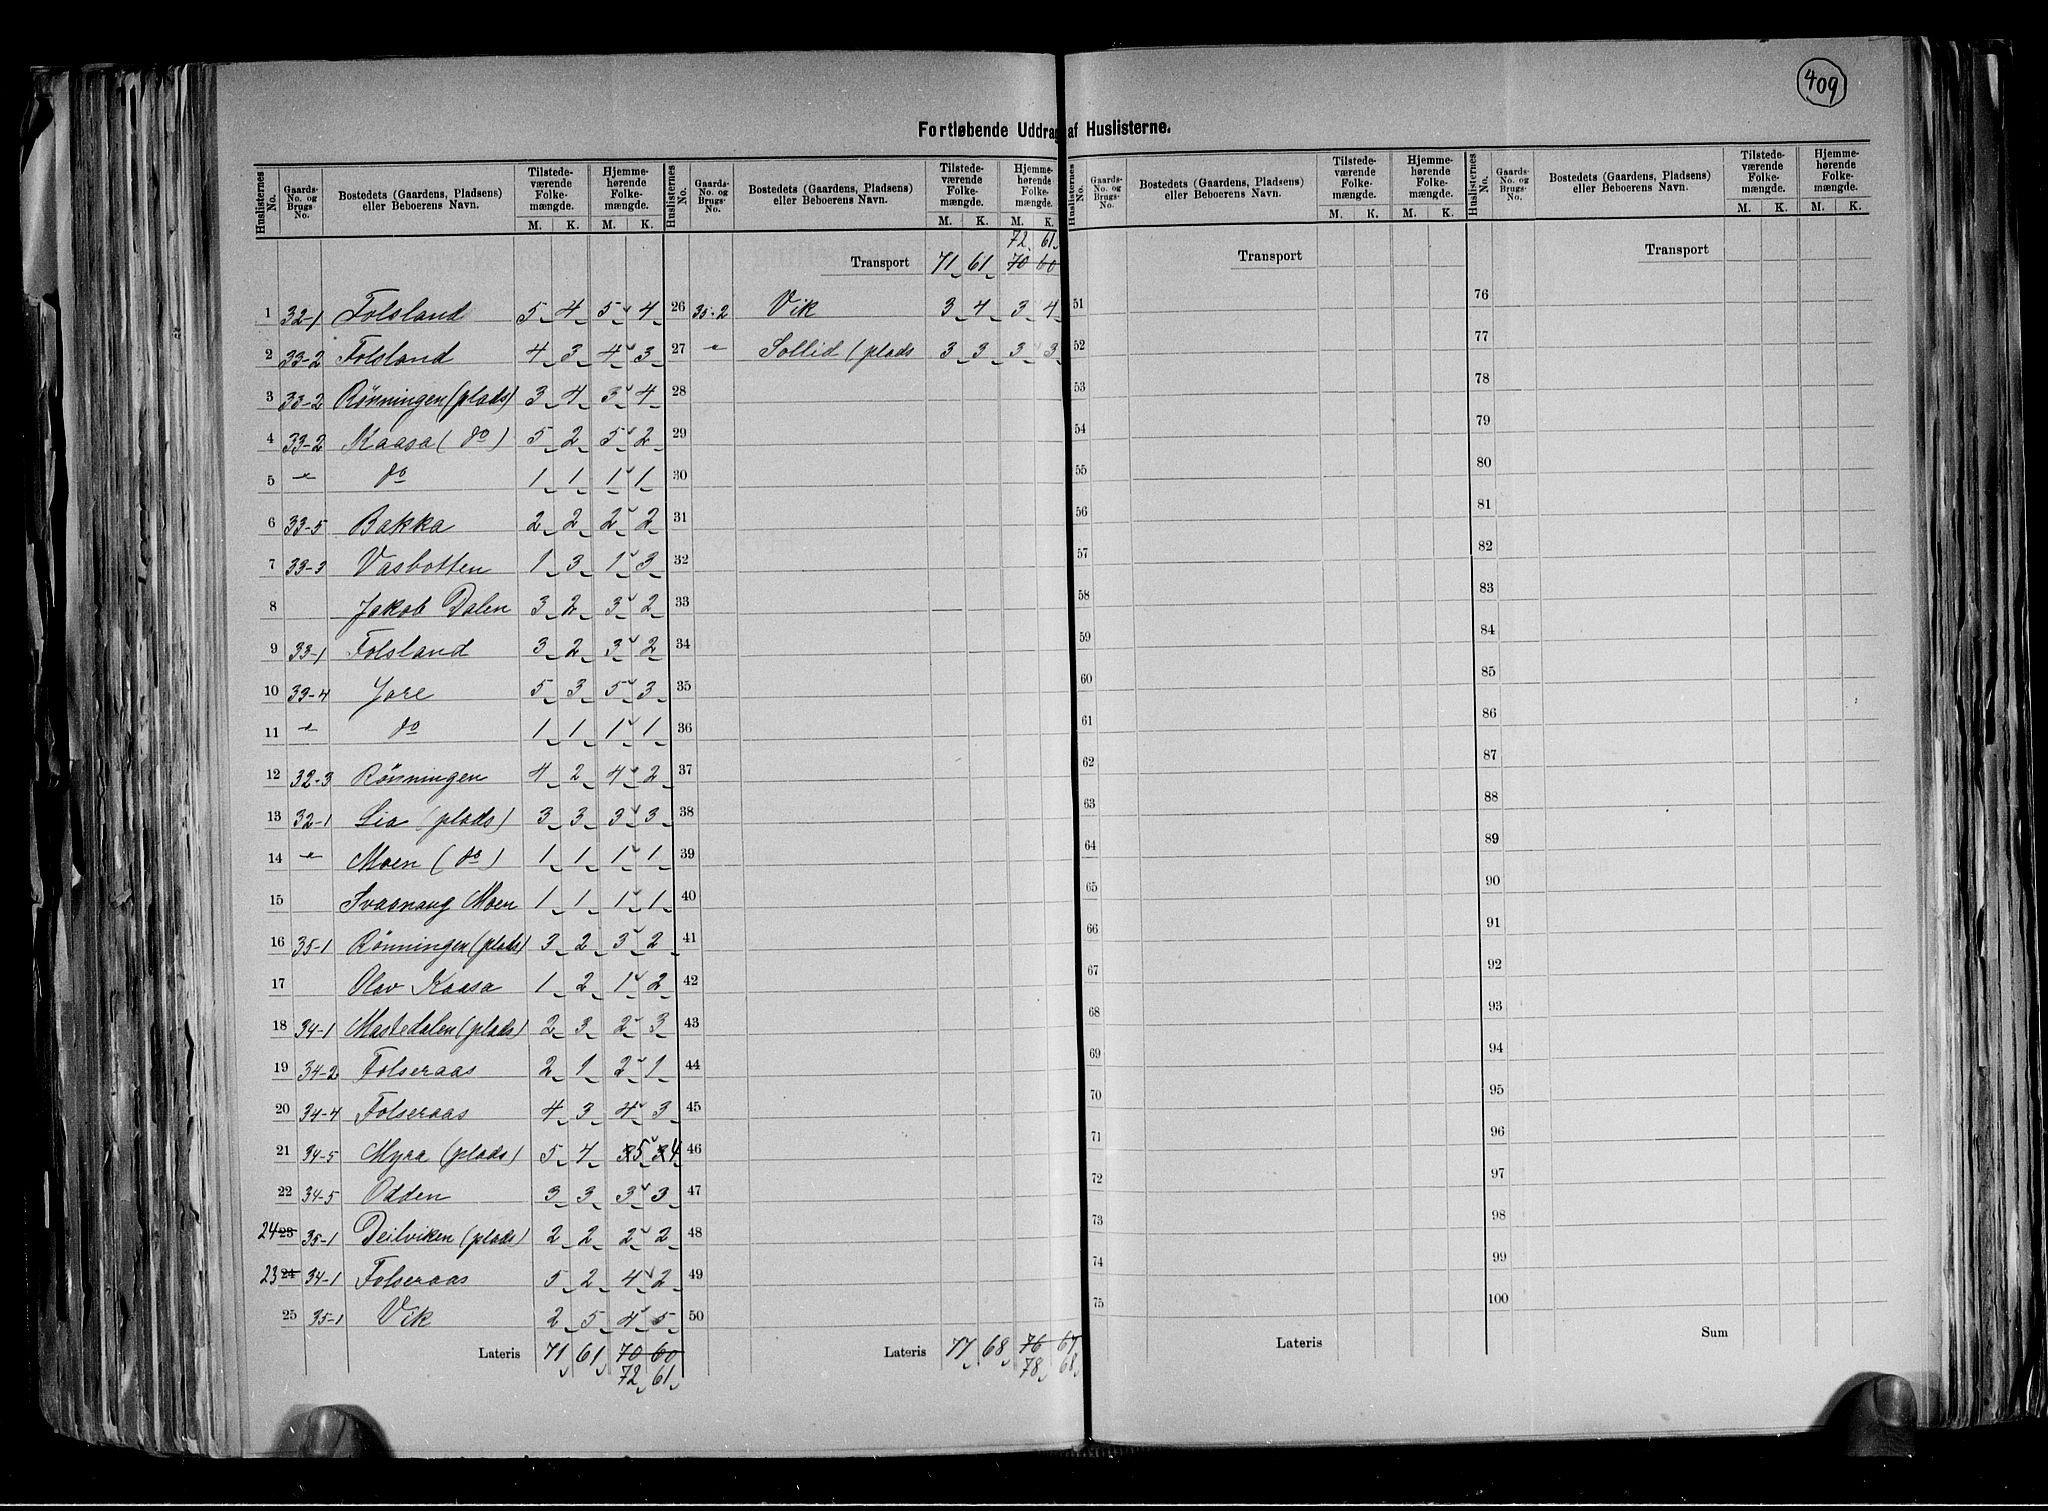 409
Fortløbende Uddrag af Huslisterne.
Huslisternes No. Gaards-No. og Brugs-No. Bostedets (Gaardens, Pladsens) eller Beboerens Navn. Tilstedeværende Folkemængde. Hjemmehørende Folkemængde.
M. K. M. K.
1 32-1 Folsland 5 4 5 4
2 33-2 Folsland 4 3 4 3
3 33-2 Rønningen (plads) 3 4 3 4
4 33-2 Kaasa (do) 5 2 5 2
5 " do 1 1 1 1
6 33-5 Bakka 2 2 2 2
7 33-3 Vasbotten 1 3 1 3
8 Jakob Dalen 3 2 3 2
9 33-1 Folsland 3 2 3 2
10 33-4 Jore 5 3 5 3
11 " do 1 1 1 1
12 32-3 Rønningen 4 2 4 2
13 32-1 Lia (plads) 3 3 3 3
14 " Moen (do) 1 1 1 1
15 Svaanaug Moen 1 1 1 1
16 35-1 Rønningen (plads) 3 2 3 2
17 Olav Kaasa 1 2 1 2
18 34-1 Mastedalen (plads) 2 3 2 3
19 34-2 Folseraas 2 1 2 1
20 34-4 Folseraas 4 3 4 3
21 34-5 Myra (plads) 5 4 3 5 3 4
22 34-5 Odden 3 3 3 3
24 23 35-1 Deilviken (plads) 2 2 2 2
23 24 34-1 Folseraas 5 2 4 2
25 35-1 Vik 2 5 4 5
Lateris 71 61 70 60
72 61
Huslisternes No. Gaards-No. og Brugs-No. Bostedets (Gaardens, Pladsens) eller Beboerens Navn. Tilstedeværende Folkemængde. Hjemmehørende Folkemængde.
M. K. M. K.
72 61
Transport 71 61 70 60
26 35-2 Vik 3 4 3 4
27 " Sollid (plads 3 3 3 3
28
29
30
31
32
33
34
35
36
37
38
39
40
41
42
43
44
45
46
47
48
49
50
Lateris 77 68 76 67
78 68
Huslisternes No. Gaards-No. og Brugs-No. Bostedets (Gaardens, Pladsens) eller Beboerens Navn. Tilstedeværende Folkemængde. Hjemmehørende Folkemængde.
M. K. M. K.
Transport
51
52
53
54
55
56
57
58
59
60
61
62
63
64
65
66
67
68
69
70
71
72
73
74
75
Lateris
Huslisternes No. Gaards-No. og Brugs-No. Bostedets (Gaardens, Pladsens) eller Beboerens Navn. Tilstedeværende Folkemængde. Hjemmehørende Folkemængde.
M. K. M. K.
Transport
76
77
78
79
80
81
82
83
84
85
86
87
88
89
90
91
92
93
94
95
96
97
98
99
100
Sum